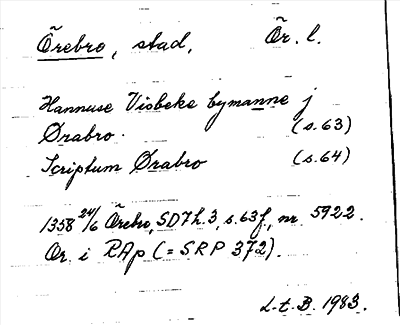 Örebro, stad, Ör. l.
Hannuse Visbeke bymanne j
Ørabro. (s. 63)
Scriptum Ørabro (s. 64)
1358 24/6 Örebro, SD 7 h. 3, s. 63 f, nr 5922.
Or. i RAp (= SRP 372).
L-t. B. 1983.